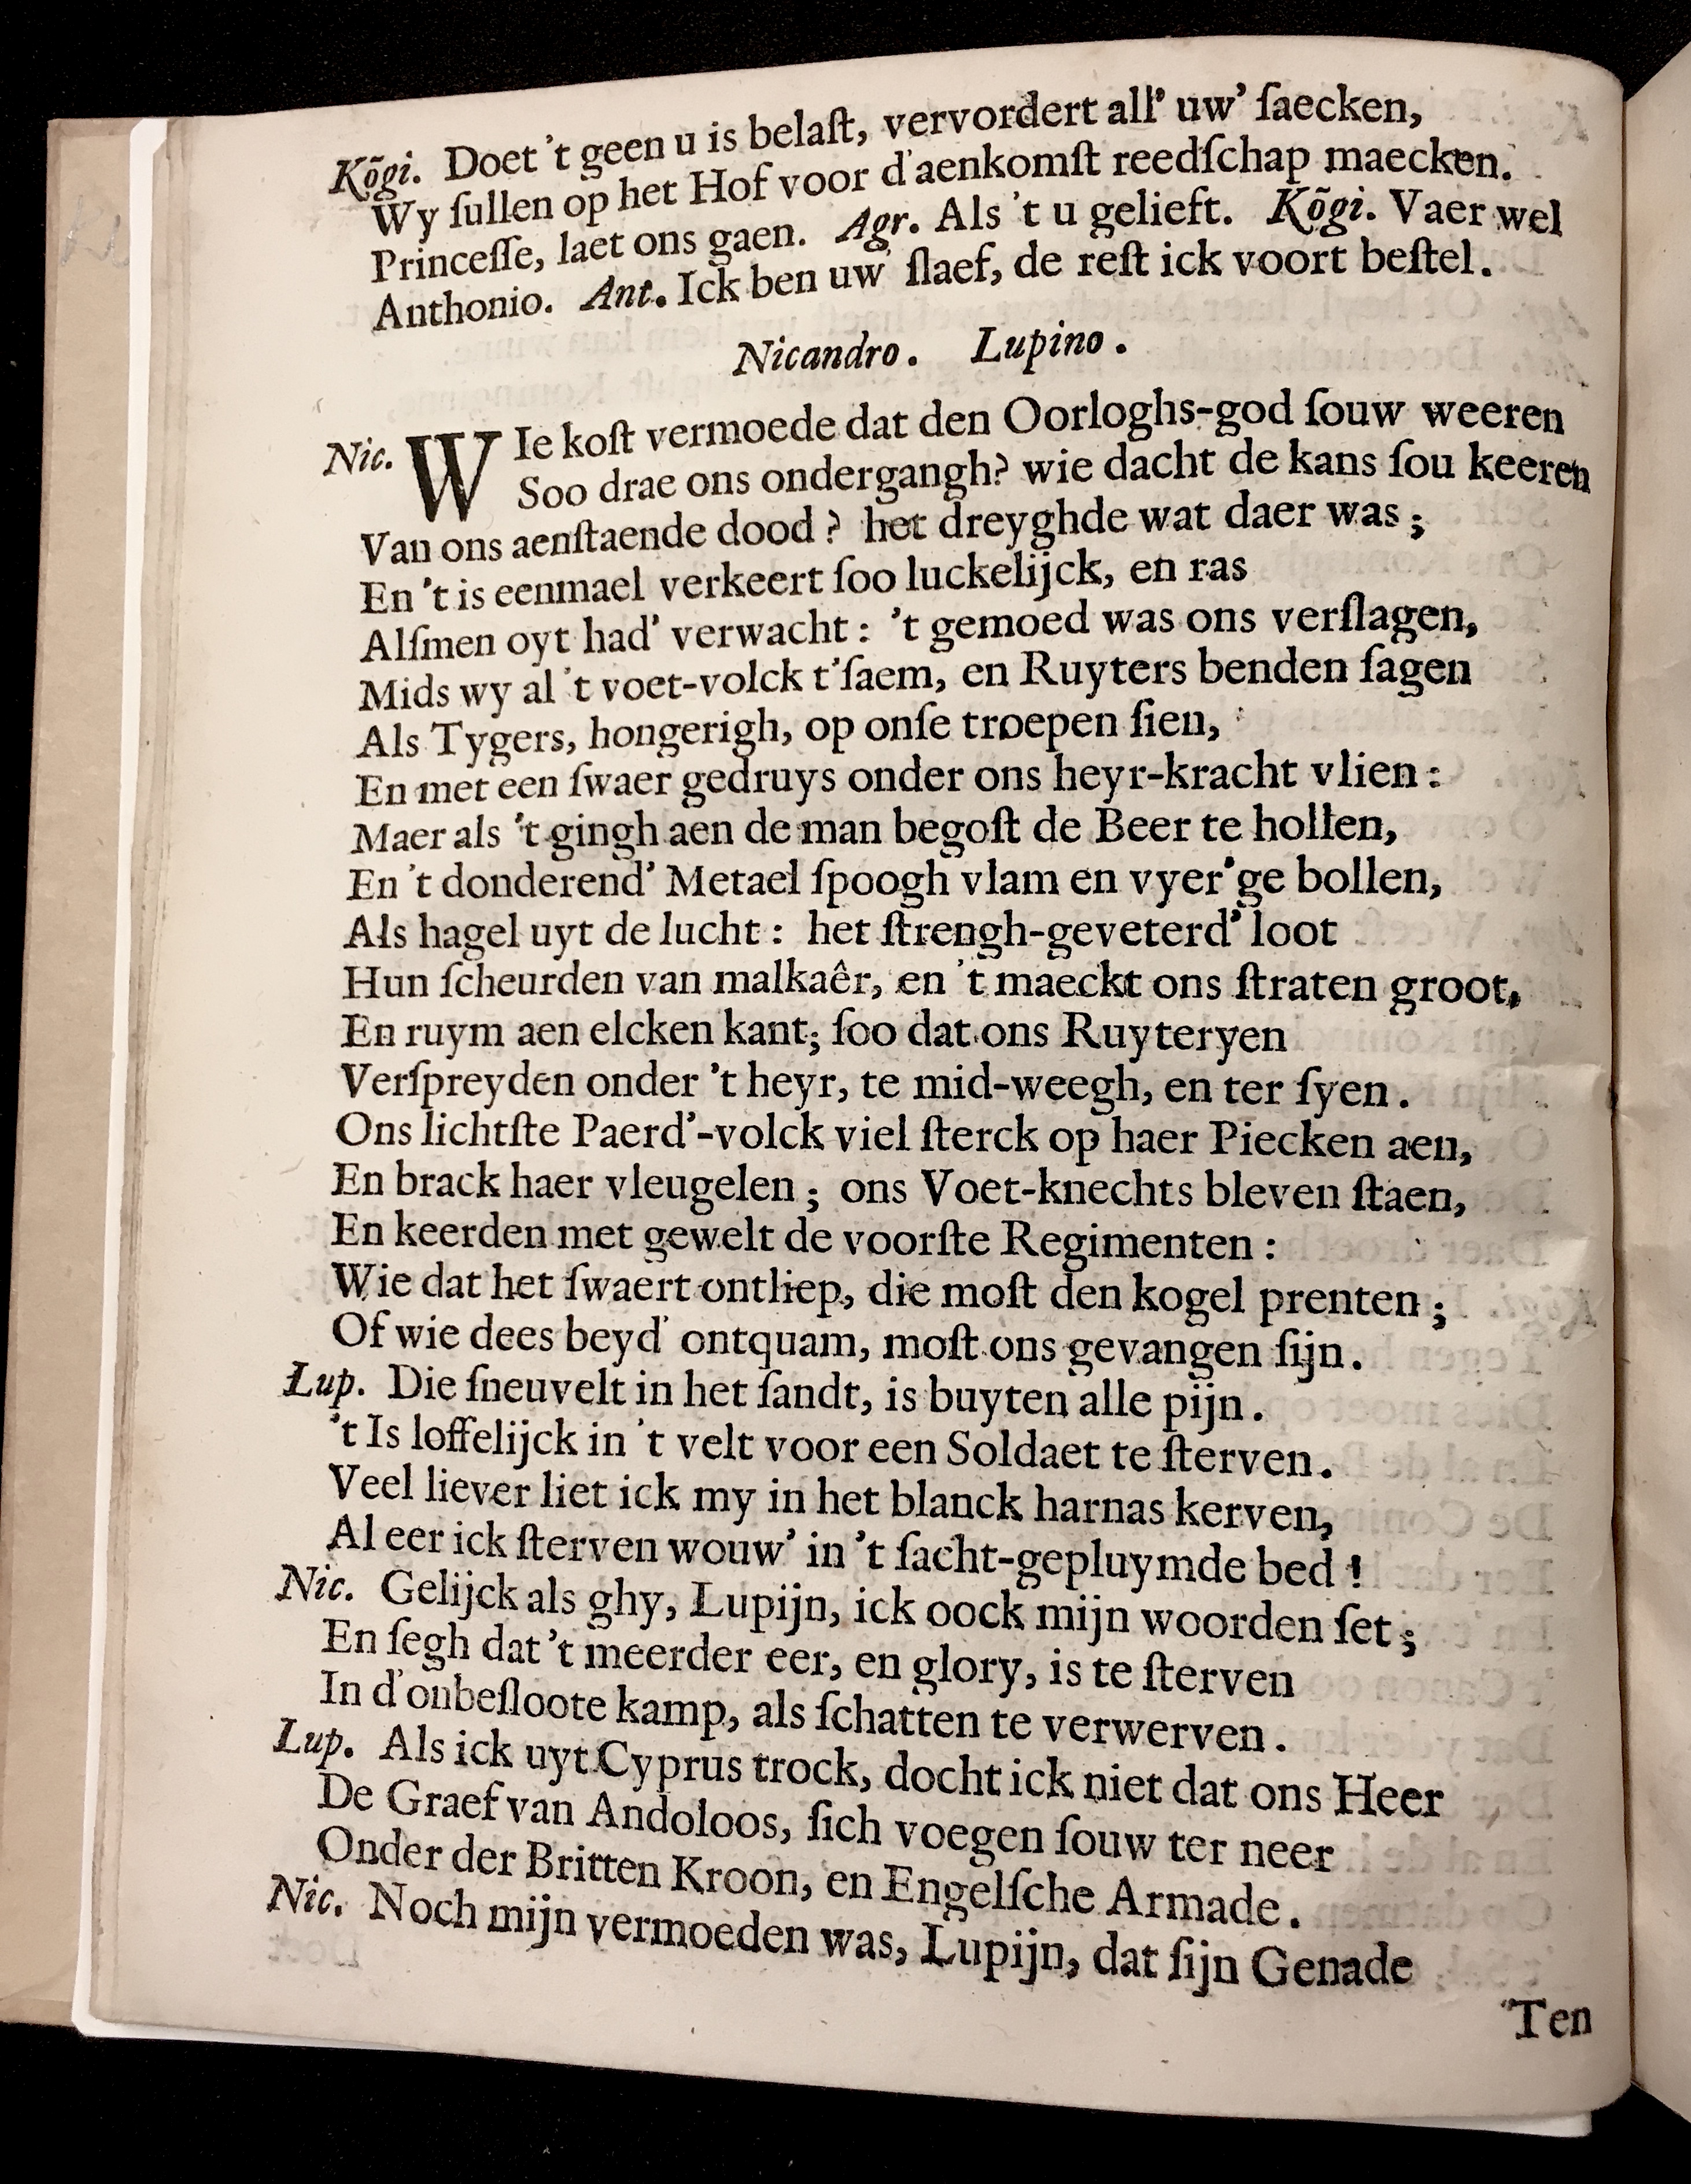 Kõgi. Doet 't geen u is belaſt, vervordert all' uw' ſaecken,
Wy ſullen op het Hof voor d'aenkomſt reedſchap maecken.
Princeſſe, laet ons gaen. Agr. Als 't u gelieft. Kõgi. Vaer wel
Anthonio. Ant. Ick ben uw' ſlaef, de reſt ick voort beſtel.
Nicandro. Lupino.
Nic. WIe koſt vermoede dat den Oorloghs-god ſouw weeren
Soo drae ons ondergangh? wie dacht de kans ſou keeren
Van ons aenſtaende dood? het dreyghde wat daer was;
En 't is eenmael verkeert ſoo luckelijck, en ras
Alſmen oyt had' verwacht: 't gemoed was ons verſlagen,
Mids wy al 't voet-volck t'ſaem, en Ruyters benden ſagen
Als Tygers, hongerigh, op onſe troepen ſien,
En met een ſwaer gedruys onder ons heyr-kracht vlien:
Maer als 't gingh aen de man begoſt de Beer te hollen,
En 't donderend' Metael ſpoogh vlam en vyer'ge bollen,
Als hagel uyt de lucht: het ſtrengh-geveterd' loot
Hun ſcheurden van malkaêr, en 't maeckt ons ſtraten groot,
En ruym aen elcken kant; ſoo dat ons Ruyteryen
Verſpreyden onder 't heyr, te mid-weegh, en ter ſyen.
Ons lichtſte Paerd'-volck viel ſterck op haer Piecken aen,
En brack haer vleugelen; ons Voet-knechts bleven ſtaen,
En keerden met gewelt de voorſte Regimenten:
Wie dat het ſwaert ontliep, die moſt den kogel prenten;
Of wie dees beyd' ontquam, moſt ons gevangen ſijn.
Lup. Die ſneuvelt in het ſandt, is buyten alle pijn.
't Is loffelijck in 't velt voor een Soldaet te ſterven.
Veel liever liet ick my in het blanck harnas kerven,
Al eer ick ſterven wouw' in 't ſacht-gepluymde bed!
Nic. Gelijck als ghy, Lupijn, ick oock mijn woorden ſet;
En ſegh dat 't meerder eer, en glory, is te ſterven
In d'onbeſloote kamp, als ſchatten te verwerven.
Lup. Als ick uyt Cyprus trock, docht ick niet dat ons Heer
De Graef van Andoloos, ſich voegen ſouw ter neer
Onder der Britten Kroon, en Engelſche Armade.
Nic. Noch mijn vermoeden was, Lupijn, dat ſijn Genade
Ten